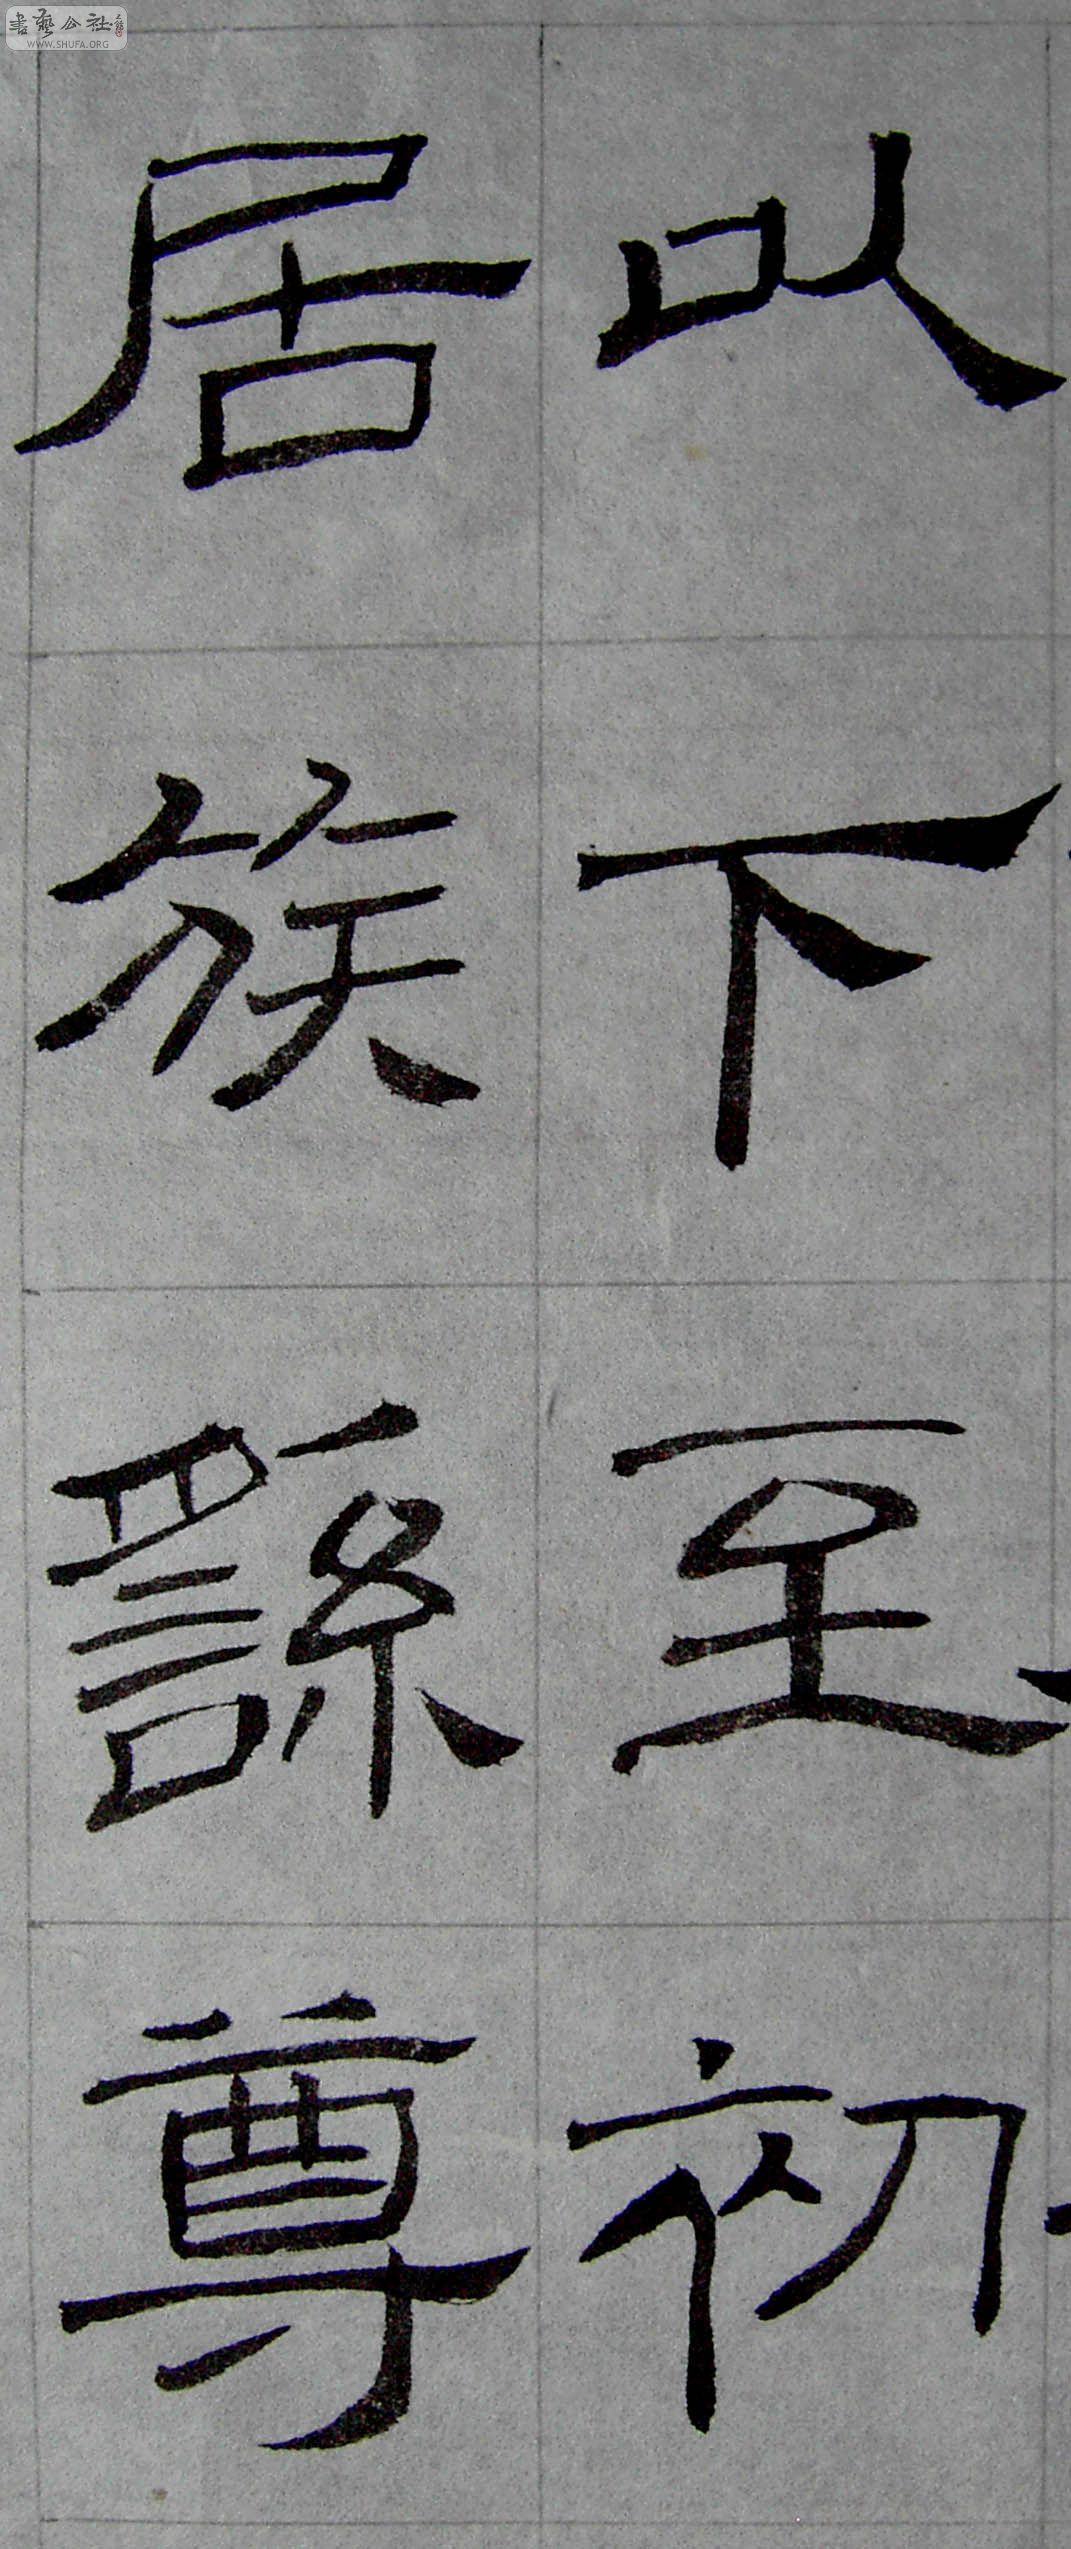 書藝公社
WWW.SHUFA.ORG
以下至初
居族繇尊